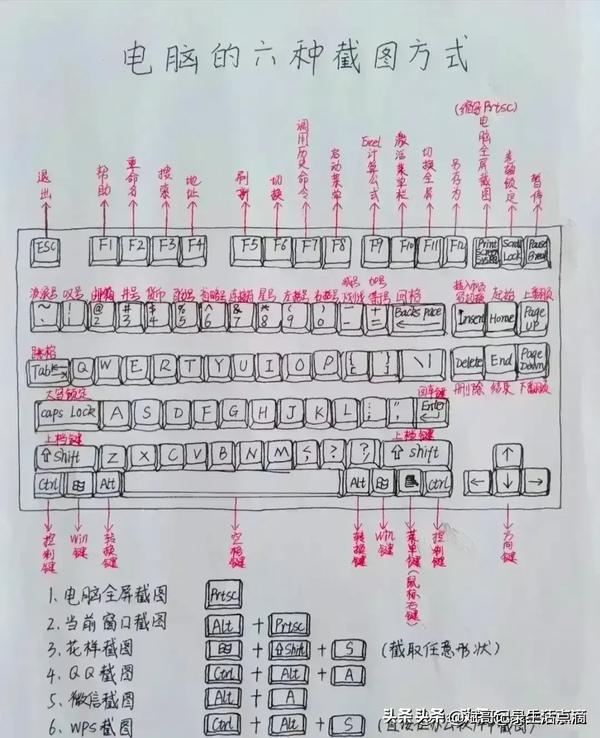 电脑的六种截图方式
(缩写Prtsc)
退出
帮助
重命名
搜索
地址
刷新
切换
调用历史命令
启动菜单
Excel计算公式
激活菜单栏
切换全屏
另存为
电脑全屏截图
暂停
ESC F1 F2 F3 F4 F5 F6 F7 F8 F9 F10 F11 F12 Print Screen SysRq Scroll Lock Pause Break
波浪号 叹号 井号 货币 星号 左括号 右括号 加号 等号 回格
~ ! @ 2 # 3 $ 4 % 5 ^ 6 & 7 * 8 ( 9 ) 0 - + = Backspace Insert Home Page UP
Tab Q W E R T Y U I O P { [ } ] \ | Delete End Page Down
大写锁定 回车键 删除 结束 下翻页
caps Lock A S D F G H J K L : ; " , Enter
上档键 上档键
⇧ Shift Z X C V B N M < > ? ⇧ Shift ↑
Ctrl Alt Alt Ctrl ← ↓ →
控制键
Win键
转换键
空格键
转换键
Win键
菜单键(鼠标右键)
控制键
方向键
1. 电脑全屏截图 Prtsc
2. 当前窗口截图 Alt + Prtsc
3. 花样截图 + ⇧Shift + S (截取任意形状)
4. QQ截图 Ctrl + Alt + A
5. 微信截图 Alt + A
6. WPS截图 Ctrl + Alt + S